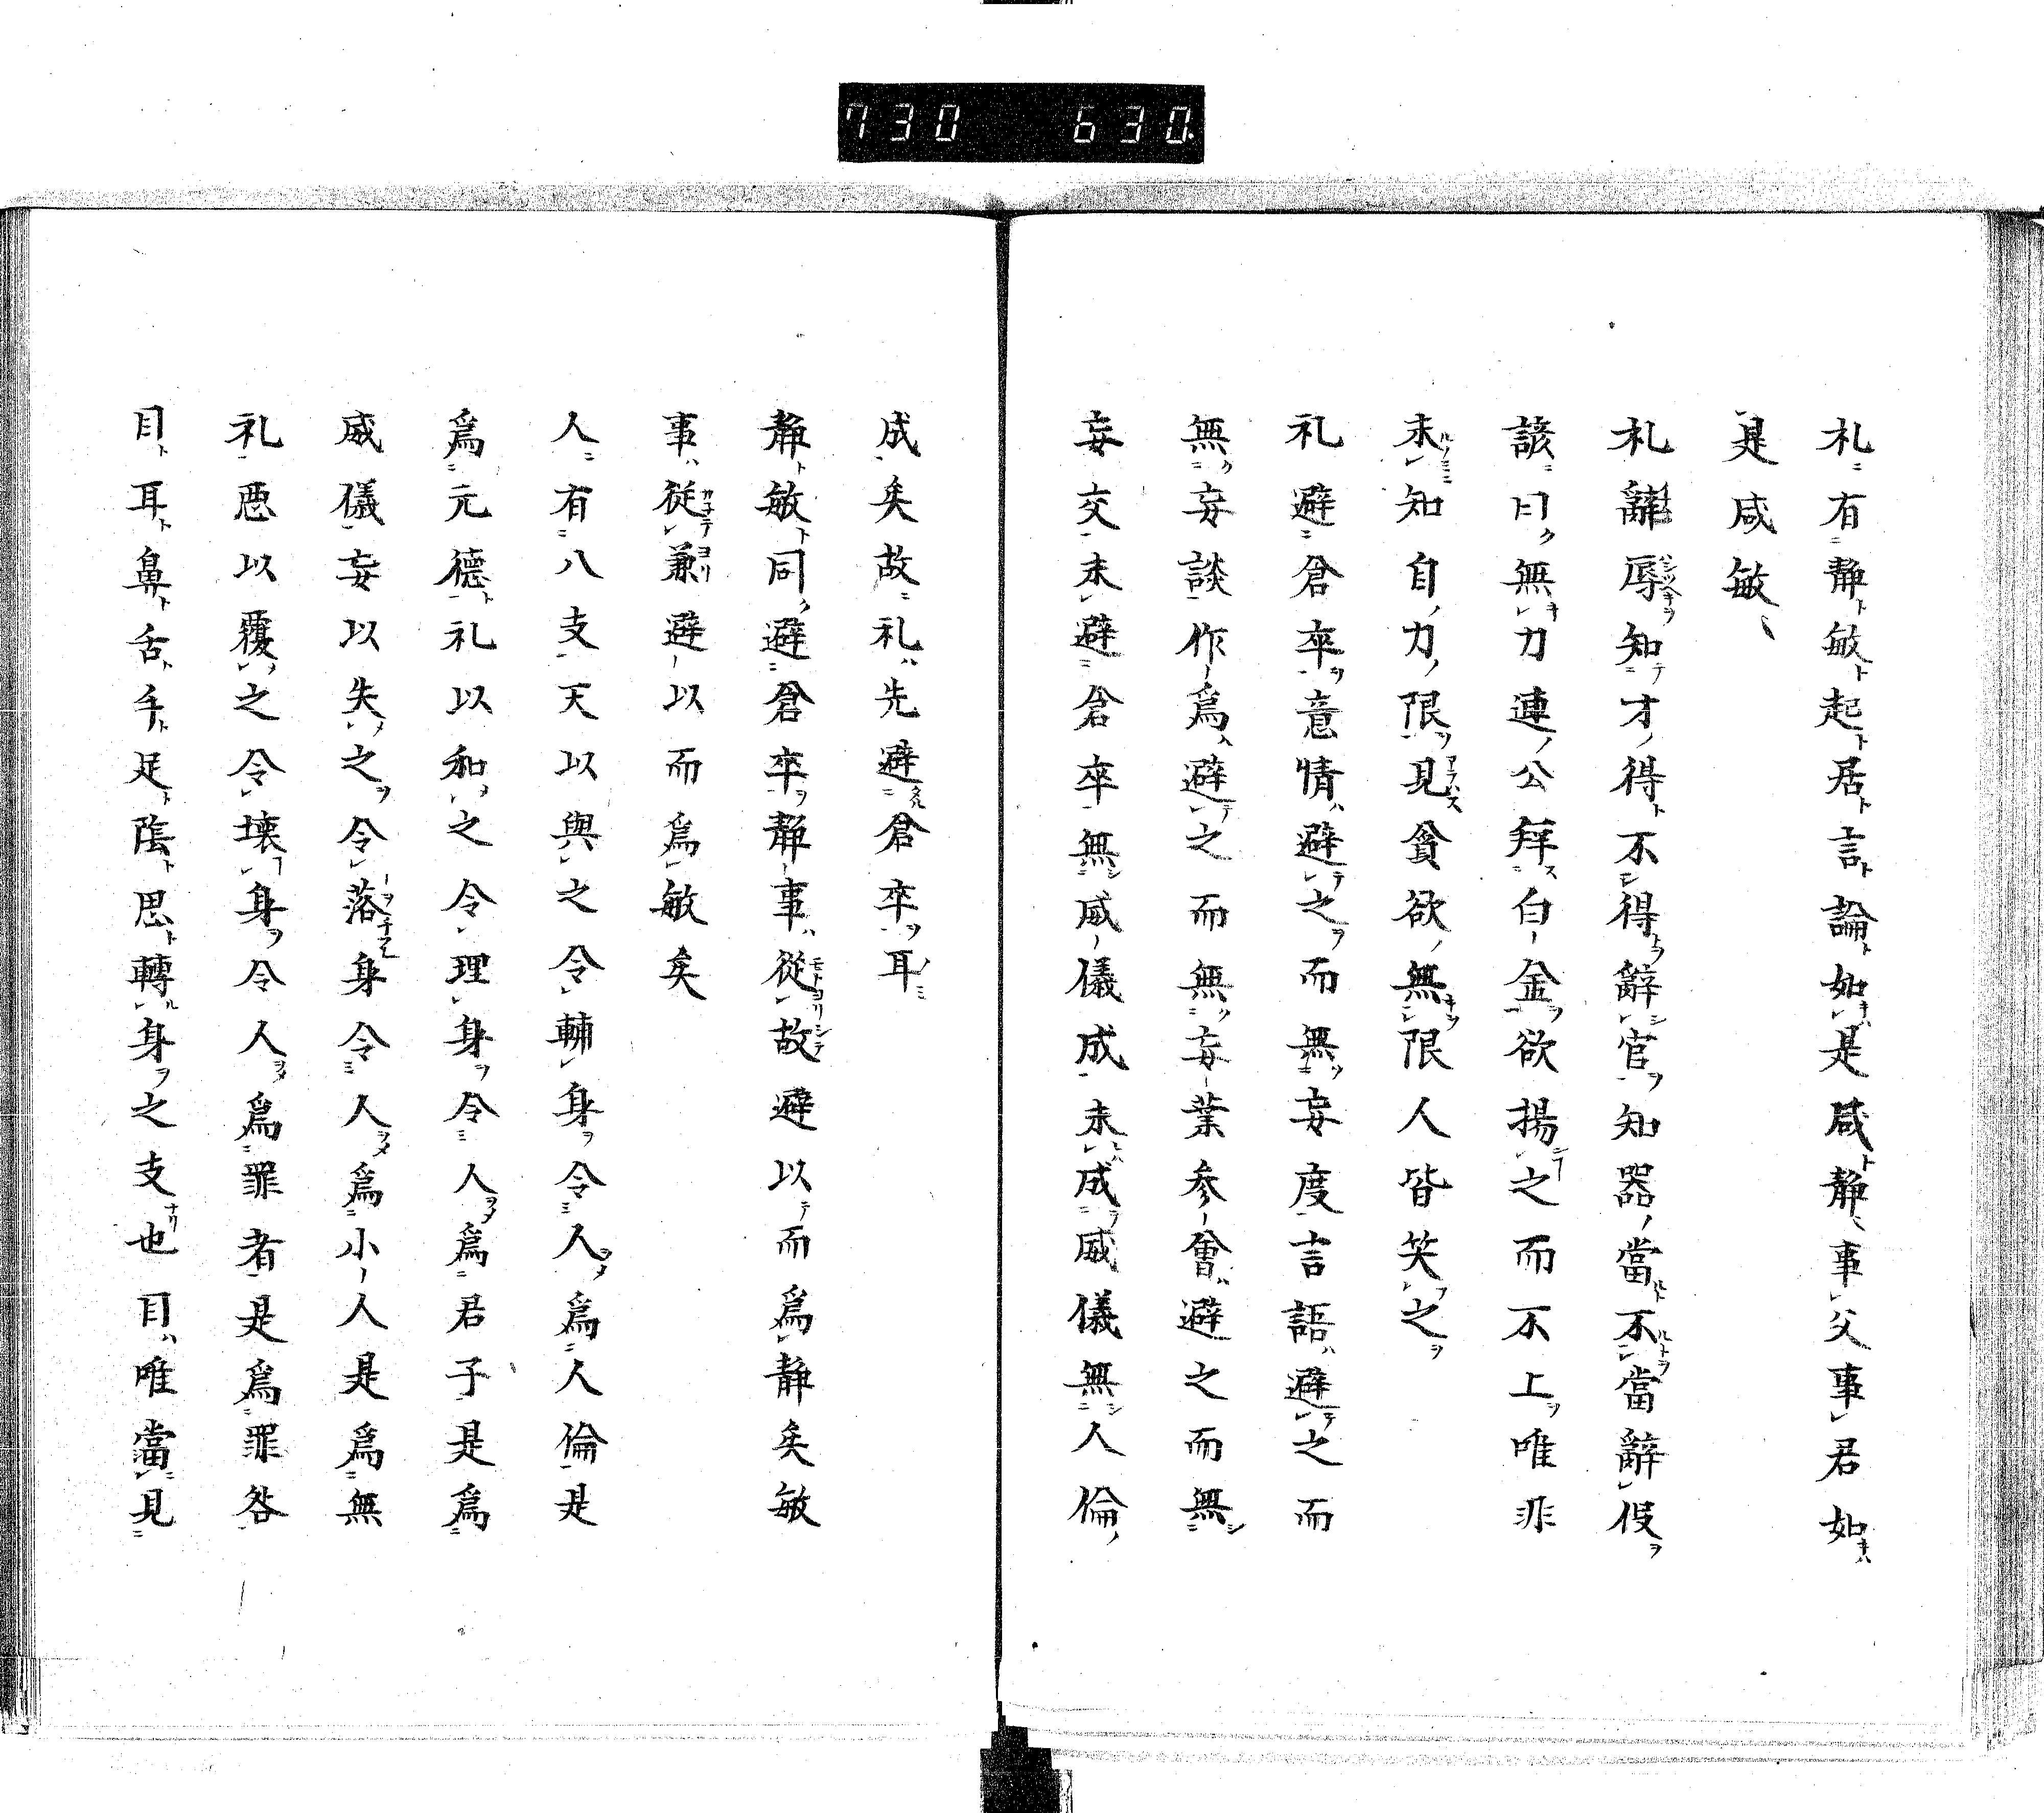 730 630
札有静敏起居言論如是咸静事父事君如
是咸敏
札辭辱知才得不得辭官知器當不當辭仮
諺曰無力連公拜白金欲揚之而不上唯非
未知自力限見貪欲無限人皆笑之
礼避倉卒意情避之而無妄度言語避之而
無妄談作為避之而無妄業参會避之而無
妄交未避倉卒無威儀成未成威儀無人倫
成矣故礼先避倉卒耳
静敏同避倉卒静事從故避以而為静矣敏
事從兼避以而為敏矣
人有八支天以與之令輔身令人為人倫是
為元德礼以和之令理身令人為君子是為
威儀妄以失之令落身令人為小人是為無
礼悪以覆之令壊身令人為罪者是為罪咎
目耳鼻舌手足陰思轉身之支也目唯當見